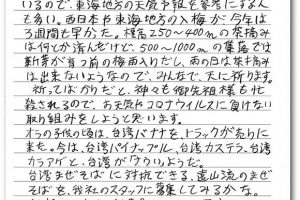 いるので、東海地方の天気予報を参考にする人
も多い。西日本や東海地方の入梅が今年は
3週間も早かった。標高250〜400mの茶摘み
は何とか済んだけど、500〜1000mの集落では
新芽が育つ前の梅雨入りだし、雨の日は茶摘み
は出来ないようなので、みんなで、天に祈ります。
祈ってばかりだと、神々も御先祖様も忙
殺されるので、お天気やコロナウイルスに負けない
取り組みをしようと思います。
オラの子供の頃は、台湾バナナを、トラックが売りに
来た。今は、台湾パイナップル、台湾カステラ、台湾
カラアゲと、台湾がアツいようだ。
台湾まぜそばに対抗できる、遠山流のまぜ
そばを、我社のスタッフに募集してみるかな。